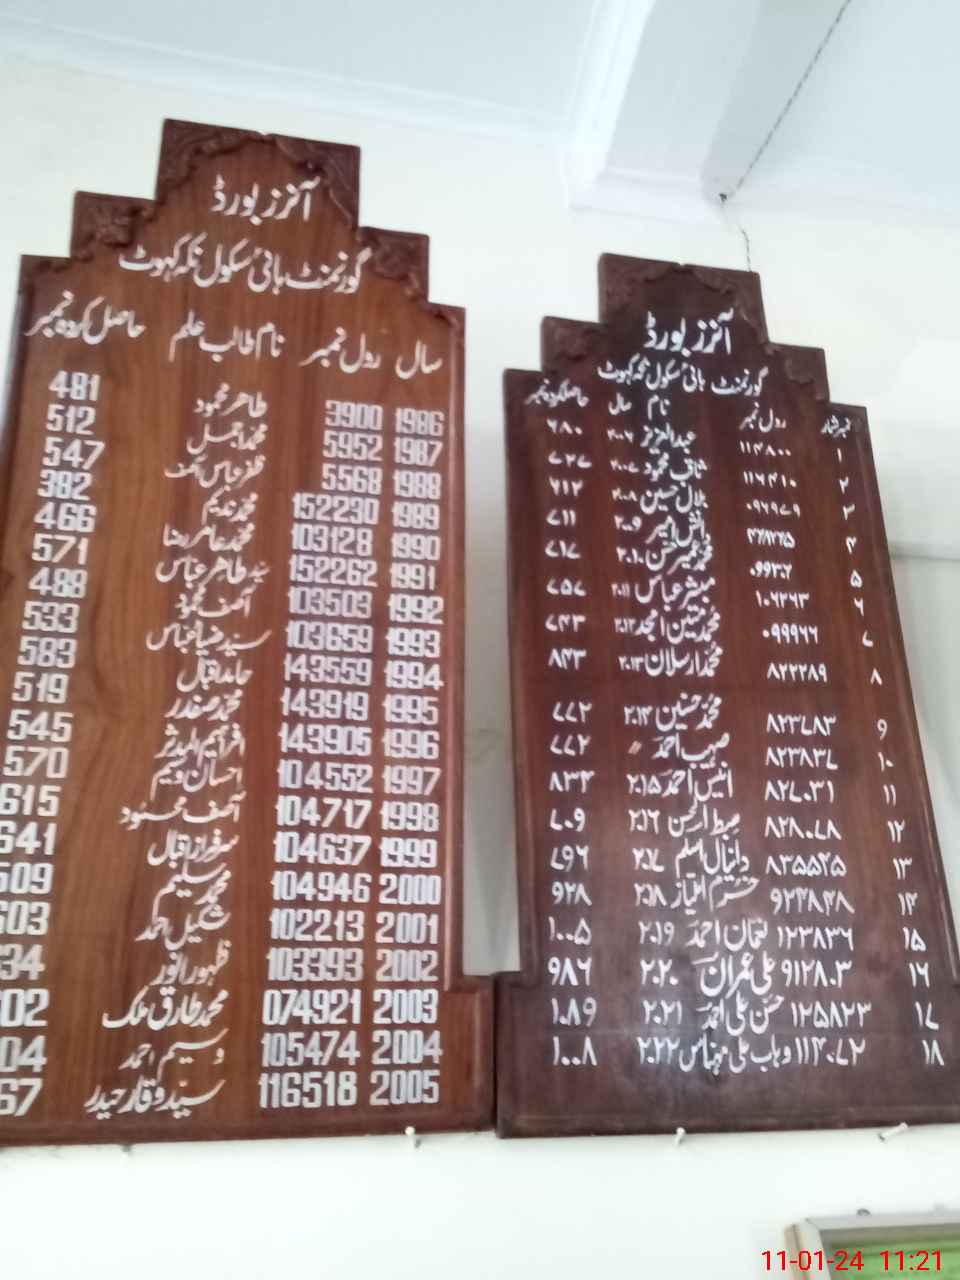 آنرز بورڈ
گورنمنٹ ہائی سکول نکہ کہوٹ
سال رول نمبر نام طالب علم حاصل کردہ نمبر
1986 3900 طاہر محمود 481
1987 5952 محمد اجمل 512
1988 5568 ظفر عباس آصف 547
1989 152230 محمد ندیم 382
1990 103128 محمد عامر رضا 466
1991 152262 سید طاہر عباس 571
1992 103503 آصف محمود 488
1993 103659 سید ضیا عباس 533
1994 143559 حامد اقبال 583
1995 143919 محمد صفدر 519
1996 143905 افراہیم المدثر 545
1997 104552 احسان وسیم 570
1998 104717 آصف مسعود 615
1999 104637 سرفراز اقبال 641
2000 104946 محمد سلیم 509
2001 102213 شکیل احمد 603
2002 103393 ظہور انور 34
2003 074921 محمد طارق ملک 02
2004 105474 وسیم احمد 04
2005 116518 سید وقار حیدر 67
آنرز بورڈ
گورنمنٹ ہائی سکول نکہ کہوٹ
نمبر شمار رول نمبر نام سال حاصل کردہ نمبر
۱ ۱۱۴۸۰۰ عبدالعزیز ۲۰۰۶ ۶۸۰
۲ ۱۱۶۴۱۰ ثاقب محمود ۲۰۰۷ ۷۲۷
۳ ۰۹۶۹۷۹ بلال حسین ۲۰۰۸ ۶۱۲
۴ انش امیر ۲۰۰۹ ۷۱۱
۵ ۰۹۹۳۰۲ محمد عمیر حسن ۲۰۱۰ ۷۱۷
۶ ۱۰۶۲۶۳ مبشر عباس ۲۰۱۱ ۷۵۷
۷ ۰۹۹۹۶۶ محمد ثقلین امجد ۲۰۱۲ ۷۴۳
۸ ۸۲۲۲۸۹ محمد ارسلان ۲۰۱۳ ۸۴۳
۹ ۸۲۳۷۸۳ محمد حسنین ۲۰۱۴ ۷۷۲
۱۰ ۸۲۳۸۳۷ صہیب احمد 〃 ۷۷۲
۱۱ ۸۲۷۰۳۱ انیس احمد ۲۰۱۵ ۸۳۴
۱۲ ۸۲۸۰۷۸ سبط الحسن ۲۰۱۶ ۷۰۹
۱۳ ۸۳۵۵۴۵ دانیال اسلم ۲۰۱۷ ۷۹۶
۱۴ ۹۲۴۸۴۸ خرم امتیاز ۲۰۱۸ ۹۲۸
۱۵ ۱۲۳۸۳۶ نعمان احمد ۲۰۱۹ ۱۰۰۵
۱۶ ۹۱۲۸۰۳ علی عمران ۲۰۲۰ ۹۸۶
۱۷ ۱۲۵۸۲۳ حسن علی احمد ۲۰۲۱ ۱۰۸۹
۱۸ ۱۱۴۰۷۲ وہاب علی مہناس ۲۰۲۲ ۱۰۰۸
11-01-24 11:21